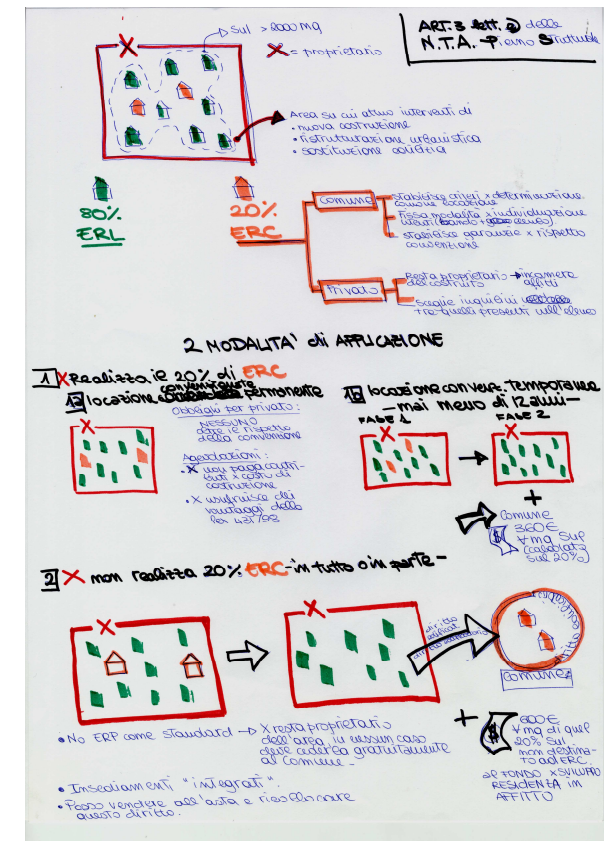 Sul > 2000 mq
X = proprietario
ART. 3 lett. e) delle
N.T.A. Piano Strutturale
Area su cui attuo interventi di
• nuova costruzione
• ristrutturazione urbanistica
• sostituzione edilizia
80%
ERL
20%
ERC
Comune
stabilisce criteri x determinazione
canone locazione
Fissa modalità x individuazione
utenti (bando + elenco)
stabilisce garanzie x rispetto
convenzione
Privato
Resta proprietario → incamera
del costruito affitti
sceglie inquilini
tra quelli presenti nell'elenco
2 MODALITA' di APPLICAZIONE
1 X Realizza il 20% di ERC
1a locazione convenzionata permanente
Obblighi per privato:
NESSUNO
oltre il rispetto
della convenzione
Agevolazioni:
• X non paga contri-
buti x costo di
costruzione
• X usufruisce dei
vantaggi della
lex 431/98
1b locazione convenz. temporanea
- mai meno di 12 anni -
FASE 1
FASE 2
+
Comune
$
360€
∀ mq Sup
(calcolata
sul 20%)
2 X non realizza 20% ERC - in tutto o in parte -
diritto
edificat.
Comune
• No ERP come standard → X resta proprietario
dell'area, in nessun caso
deve cederla gratuitamente
al Comune -
+
$
600€
∀ mq di quel
20% Sul
non destina-
to ad ERC
al FONDO x SVILUPPO
RESIDENZA IN
AFFITTO
• Insediamenti "integrati".
• Posso vendere all'asta
questo diritto.